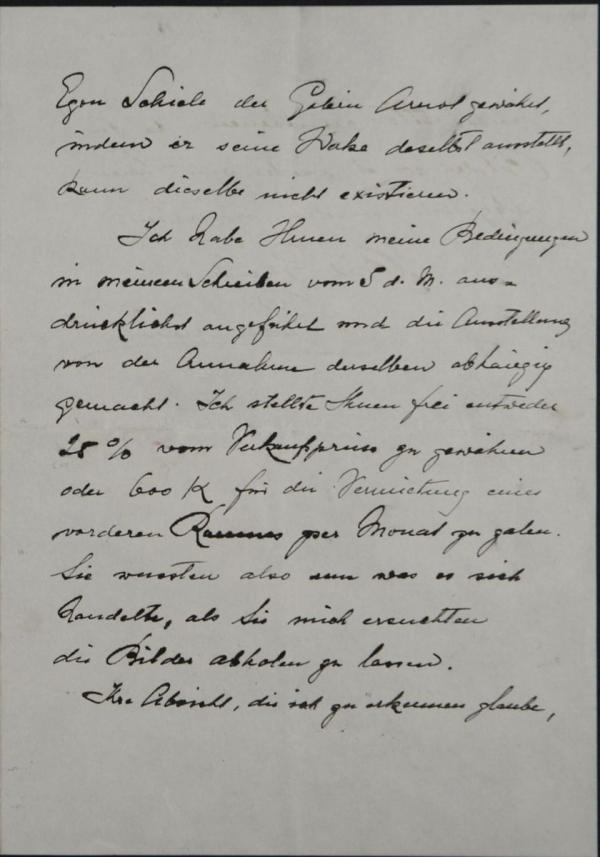 Egon Schiele der Galerie Arnot gewährt,
indem er seine Werke daselbst ausstellt,
kann dieselbe nicht existieren.
Ich habe Ihnen meine Bedingungen
in meinem Schreiben vom 5 d. M. aus-
drücklichst angeführt und die Ausstellung
von der Annahme derselben abhängig
gemacht. Ich stellte Ihnen frei entweder
25 % vom Verkaufspreise zu gewähren
oder 600 K für die Vermietung eines
vorderen Raumes per Monat zu geben.
Sie wussten also um was es sich
handelte, als Sie mich ersuchten
die Bilder abholen zu lassen.
Ihre Absicht, die ich zu erkennen glaube,